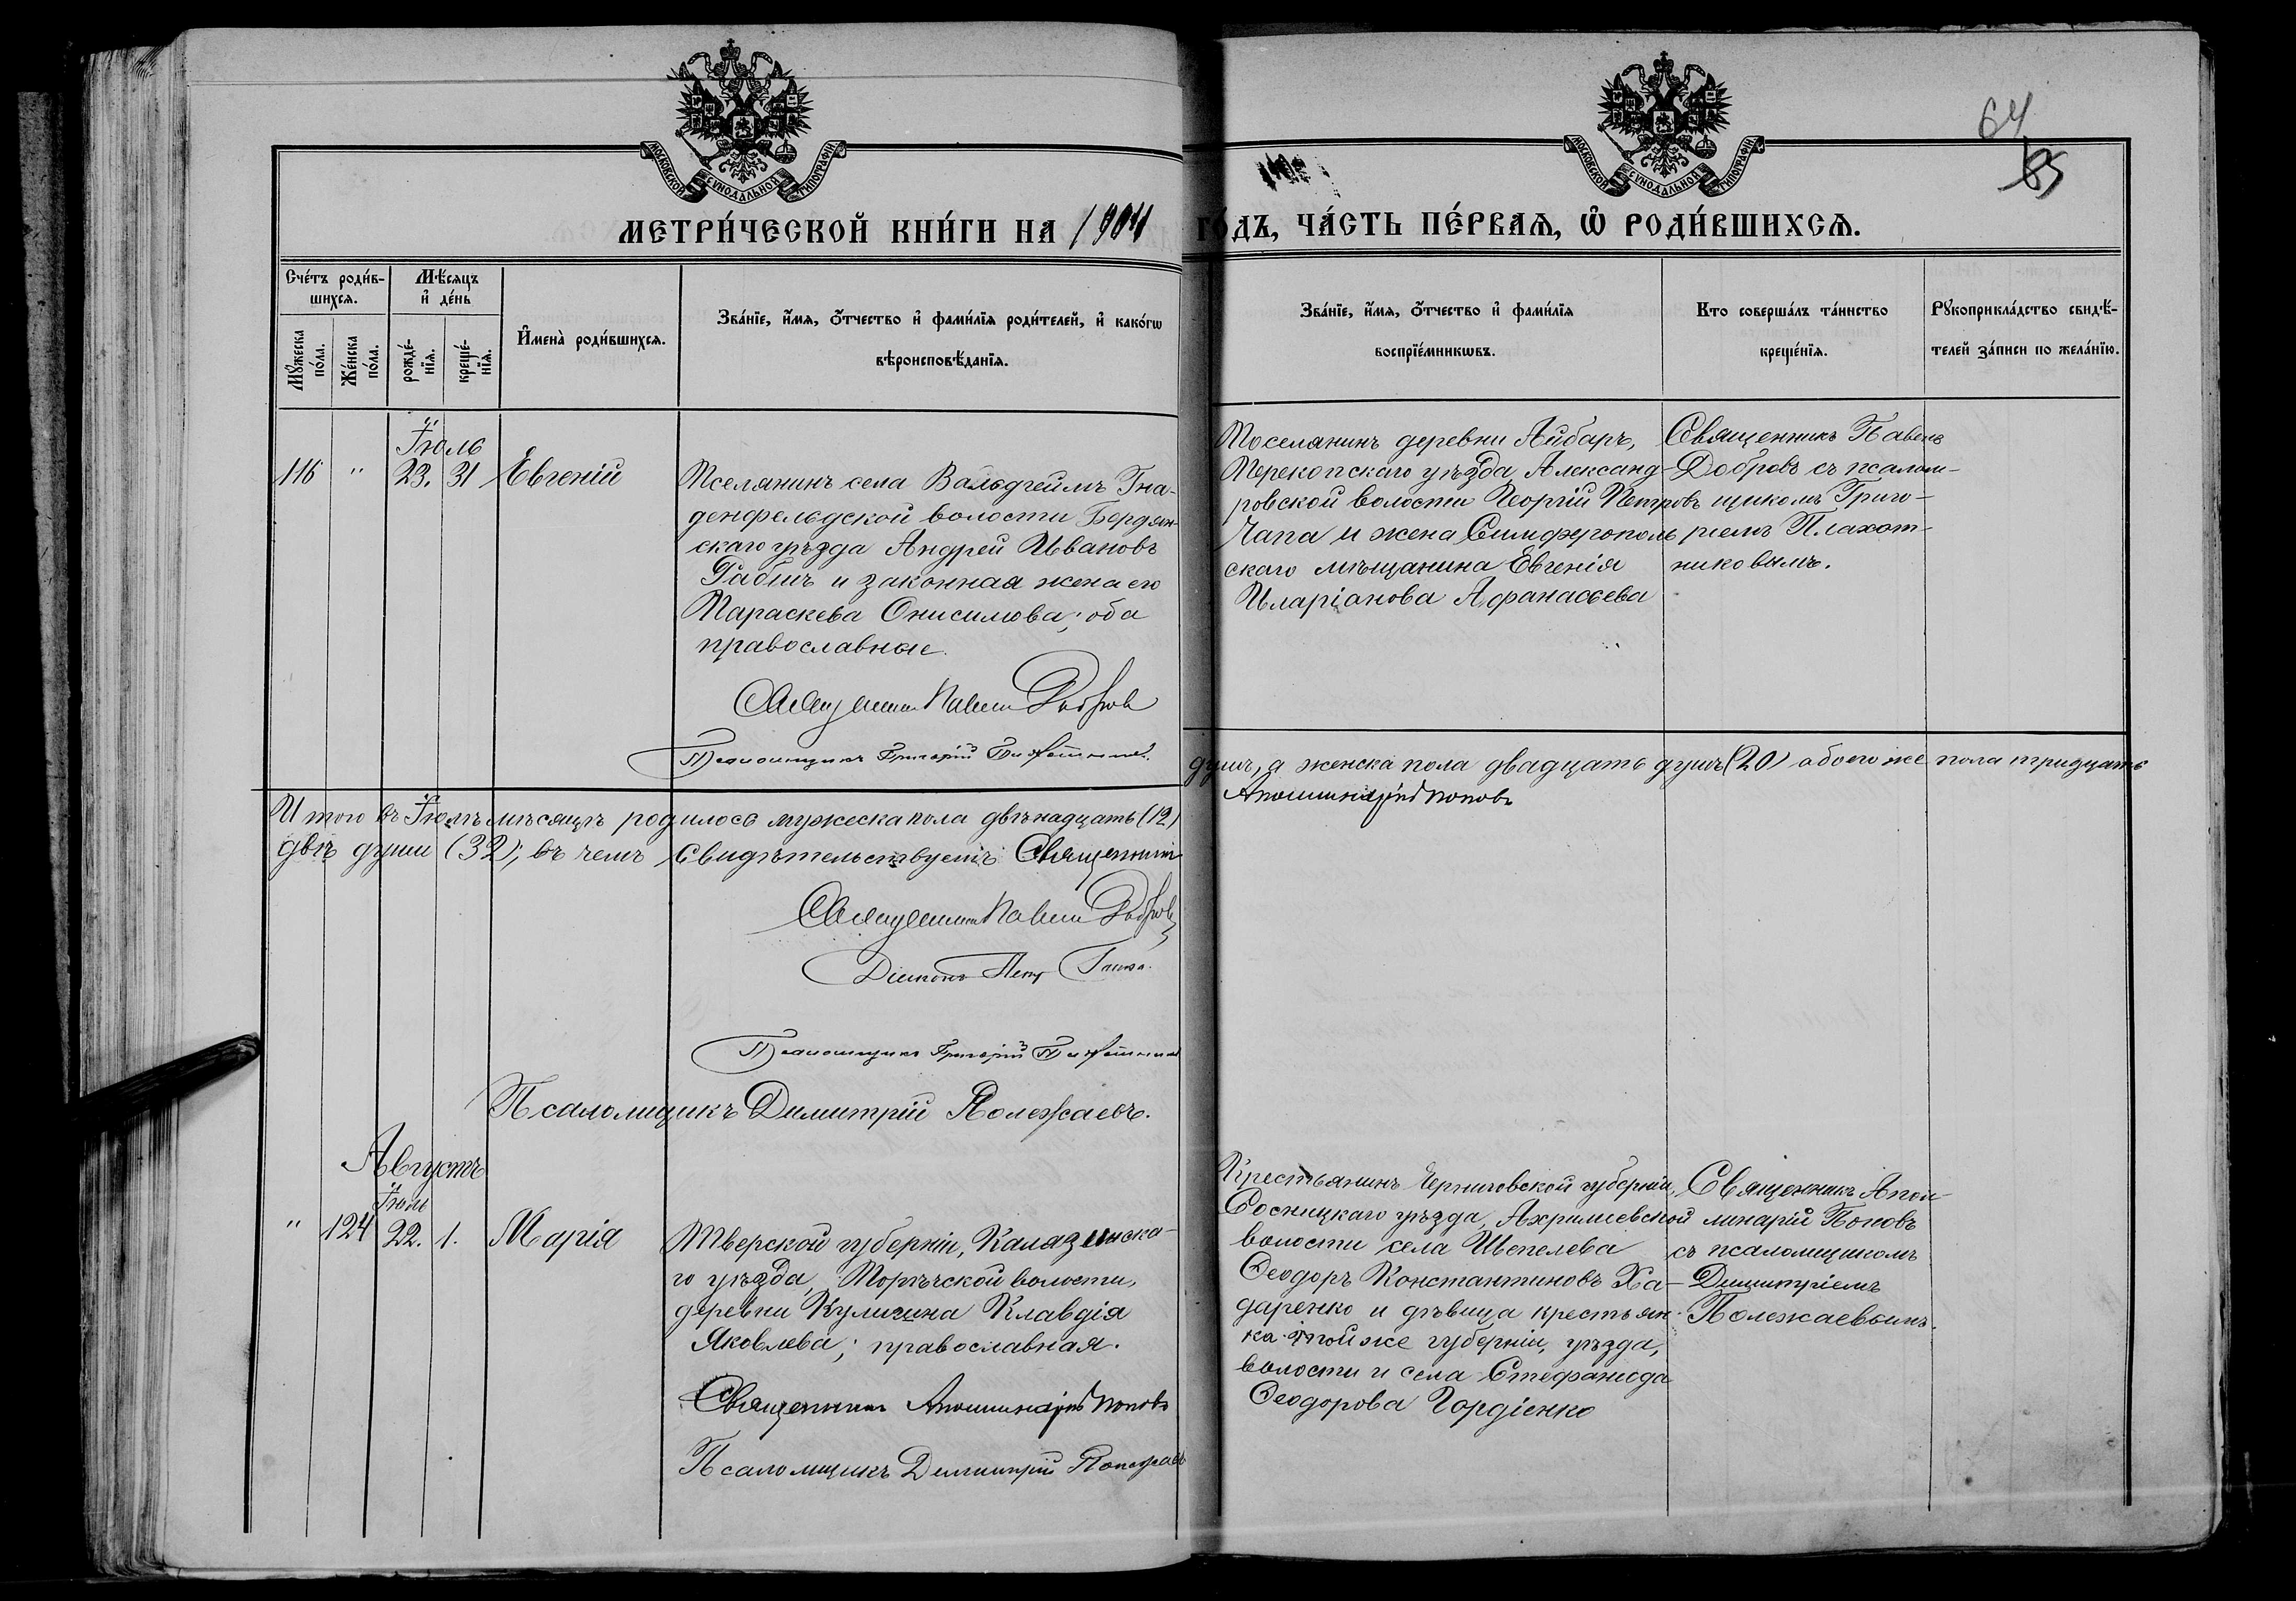 МОСКОВСКОЙ СѴНОДАЛЬНОЙ ТИПОГРАФІИ
МОСКОВСКОЙ СѴНОДАЛЬНОЙ ТИПОГРАФІИ
64
85
МЕТРИ́ЧЕСКОЙ КНИ́ГИ НА 1904 ГО́ДЪ, ЧА́СТЬ ПЕ́РВАѦ, Ѡ҆ РОДИ́ВШИХСѦ.
Сче́тъ роди́в-
шихсѧ.
Мѣ́сѧцъ
и҆ де́нь
Мꙋ́жеска
по́ла.
Же́нска
по́ла.
рожде́-
нїѧ.
креще́-
нїѧ.
И҆мена̀ роди́вшихсѧ.
Зва́нїе, и҆́мѧ, ѻ҆́тчество и҆ фами́лїѧ роди́телей, и҆ како́гѡ
вѣроисповѣ́данїѧ.
Зва́нїе, и҆́мѧ, ѻ҆́тчество и҆ фами́лїѧ
воспрїе́мникѡвъ.
Кто соверша́лъ та́инство
креще́нїѧ.
Рꙋкоприкла́дство свидѣ́-
телей за́писи по жела́нїю.
Іюль
116 " 23. 31 Евгеній
Пселянинъ села Вальдгеймъ Гна-
денфельдской волости Бердян-
скаго уѣзда Андрей Ивановъ
Рабишъ и законная жена его
Параскева Онисимова; оба
православные.
Священникъ Павелъ Добровъ
Псаломщикъ Григорій
Поселянинъ деревни Айбаръ,
Перекопскаго уѣзда, Александ-
ровской волости Георгій Петровъ
Чапа и жена Симферополь
скаго мѣщанина Евгенія
Иларіанова Афанасьева
Священникъ Павелъ
Добровъ съ псалом-
щикомъ Григо-
ріемъ Плахот-
никовымъ.
Итого въ Іюлѣ мѣсяцѣ родилось мужеска пола двѣнадцать (12)
душъ, а женска пола двадцать душъ (20) обоего же пола тридцать
двѣ души (32), въ чемъ свидѣтельствуемъ: Священникъ
Аполлинарій Поповъ
Священникъ Павелъ Добровъ
Діаконъ Петръ
Псаломщикъ Григорій
Псаломщикъ Димитрій Полежаевъ.
Августъ
Іюль
" 124 22. 1. Марія
Тверской губерніи, Калязинска-
го уѣзда, волости,
деревни Кулигина Клавдія
Яковлева; православная.
Священникъ Аполлинарій Поповъ
Псаломщикъ Димитрій Полежаевъ
Крестьянинъ Черниговской губерніи,
Сосницкаго уѣзда, волости села
Феодоръ Константиновъ Ха-
даренко и дѣвица крестьян-
ка той же губерніи, уѣзда,
волости и села Стефанида
Феодорова Гордіенко
Священникъ Апол-
линарій Поповъ
съ псаломщикомъ
Димитріемъ
Полежаевымъ.